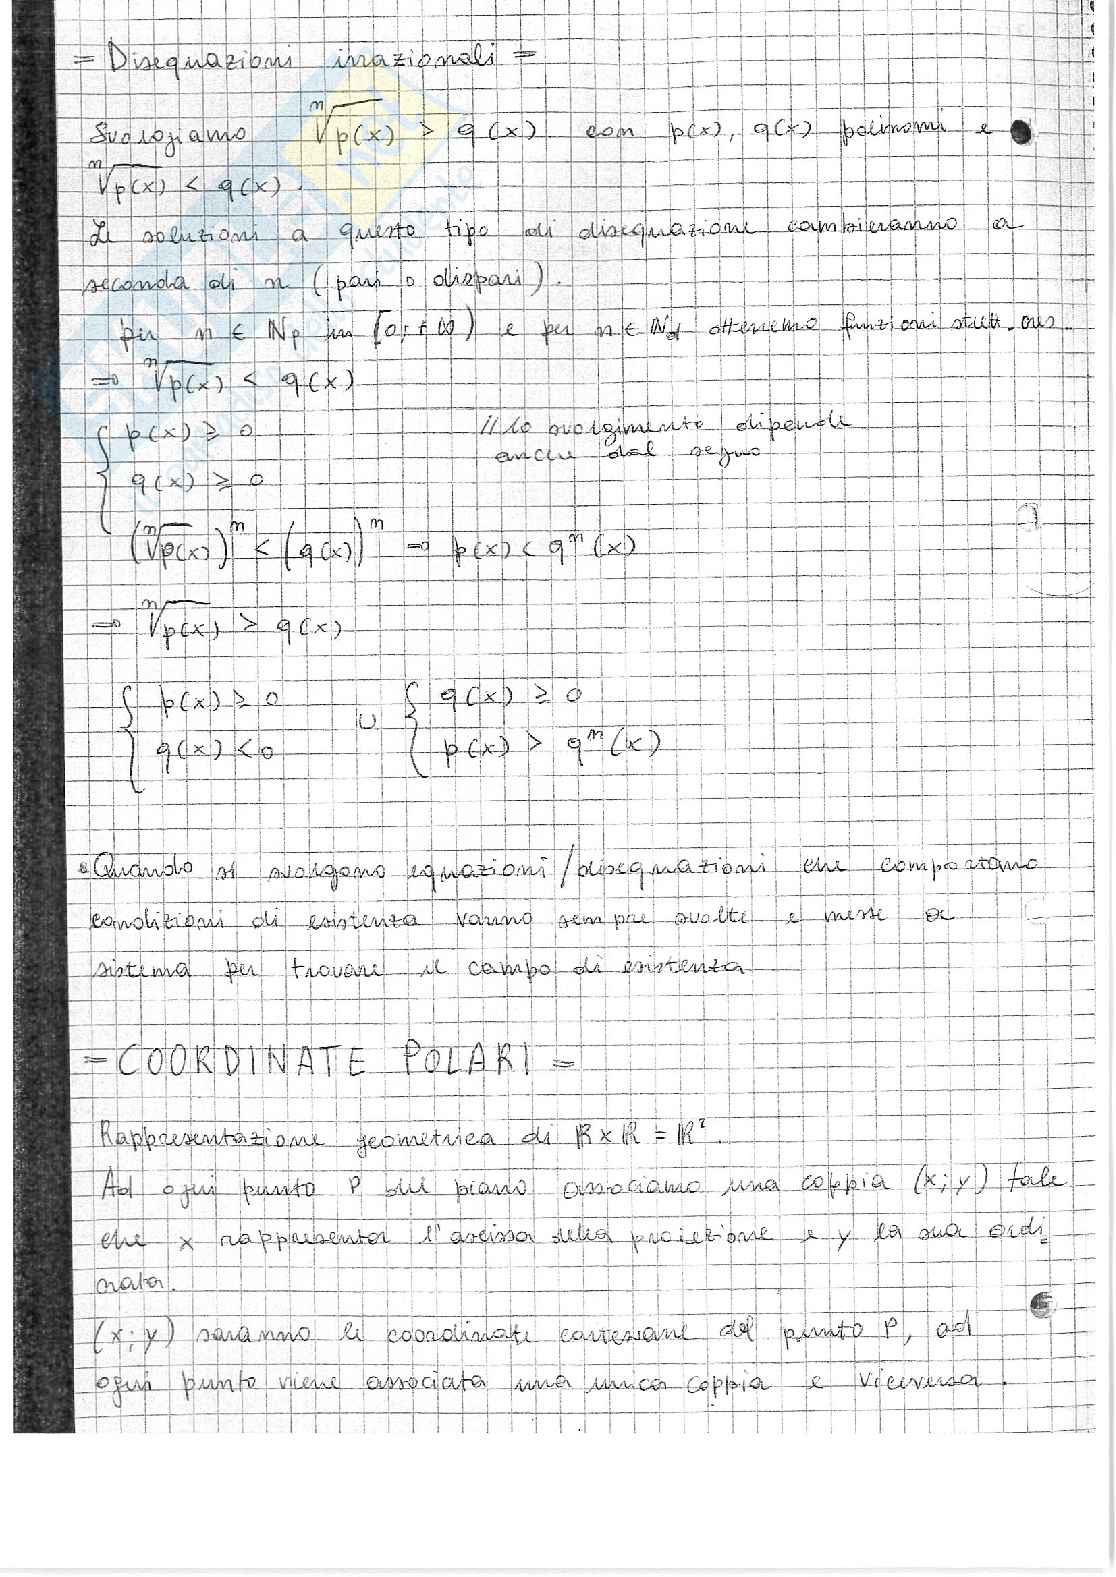 = Disequazioni irrazionali =
Svolgiamo ⁿ√p(x) > q(x) con p(x), q(x) polinomi e
ⁿ√p(x) < q(x).
Le soluzioni a questo tipo di disequazione cambieranno a
seconda di n (pari o dispari).
per n ∈ ℕp in [0;+∞) e per n ∈ ℕd otteniamo funzioni strett. cres.
⇒ ⁿ√p(x) < q(x)
{ p(x) ≥ 0 // lo svolgimento dipende
anche dal segno
q(x) ≥ 0
(ⁿ√p(x))ⁿ < (q(x))ⁿ ⇒ p(x) < qⁿ(x)
⇒ ⁿ√p(x) > q(x)
{ p(x) ≥ 0 ∪ { q(x) ≥ 0
q(x) < 0 p(x) > qⁿ(x)
• Quando si svolgono equazioni/disequazioni che comportano
condizioni di esistenza vanno sempre svolte e messe a
sistema per trovare il campo di esistenza
= COORDINATE POLARI =
Rappresentazione geometrica di ℝ×ℝ = ℝ².
Ad ogni punto P sul piano associamo una coppia (x;y) tale
che x rappresenta l'ascissa della proiezione e y la sua ordi
nata.
(x;y) saranno le coordinate cartesiane del punto P, ad
ogni punto viene associata una unica coppia e viceversa.